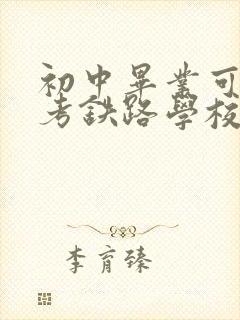 初中畢業可
考鉄路學校
李育臻